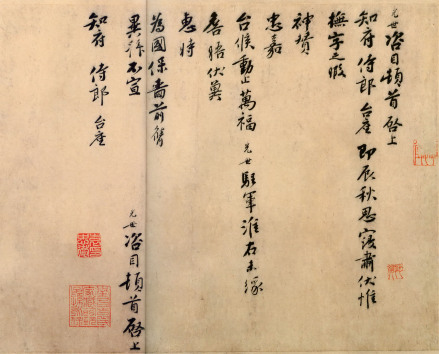 光世咨目頓首啓上
知府侍郎台座即辰秋思寖肅伏惟
撫字之暇
神賛
忠嘉
台候動止萬福光世駐軍淮右未緣
占晤伏冀
惠時
為國保嗇前膺
異拜不宣
光世咨目頓首啓上
知府侍郎台座